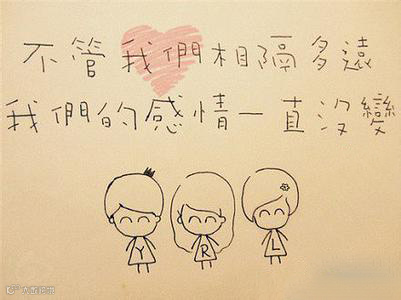 不管我們相隔多遠
我們的感情一直沒變
Y R L